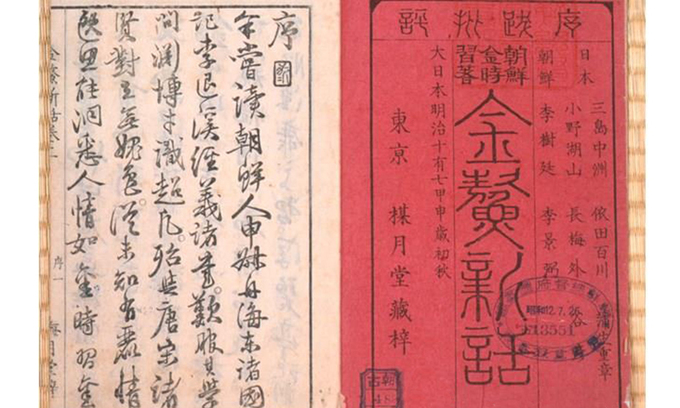 序跋批評
日本
三島中洲 依田百川
小野湖山 長梅外
蒲生重章
朝鮮 李樹廷 李景弼
朝鮮
金時
習著
金鰲新話
大日本明治十有七甲申歲初秋
東京 楳月堂藏梓
昭和12.7.
13551
序
余嘗讀朝鮮人申叔舟海東諸國
記李退溪經義諸書歎服其學
問淵博才識超凡殆與唐宋諸
賢對立無媿色從未知有麗情
艷思能洞悉人情如金時習金
金鰲新話卷之
序一